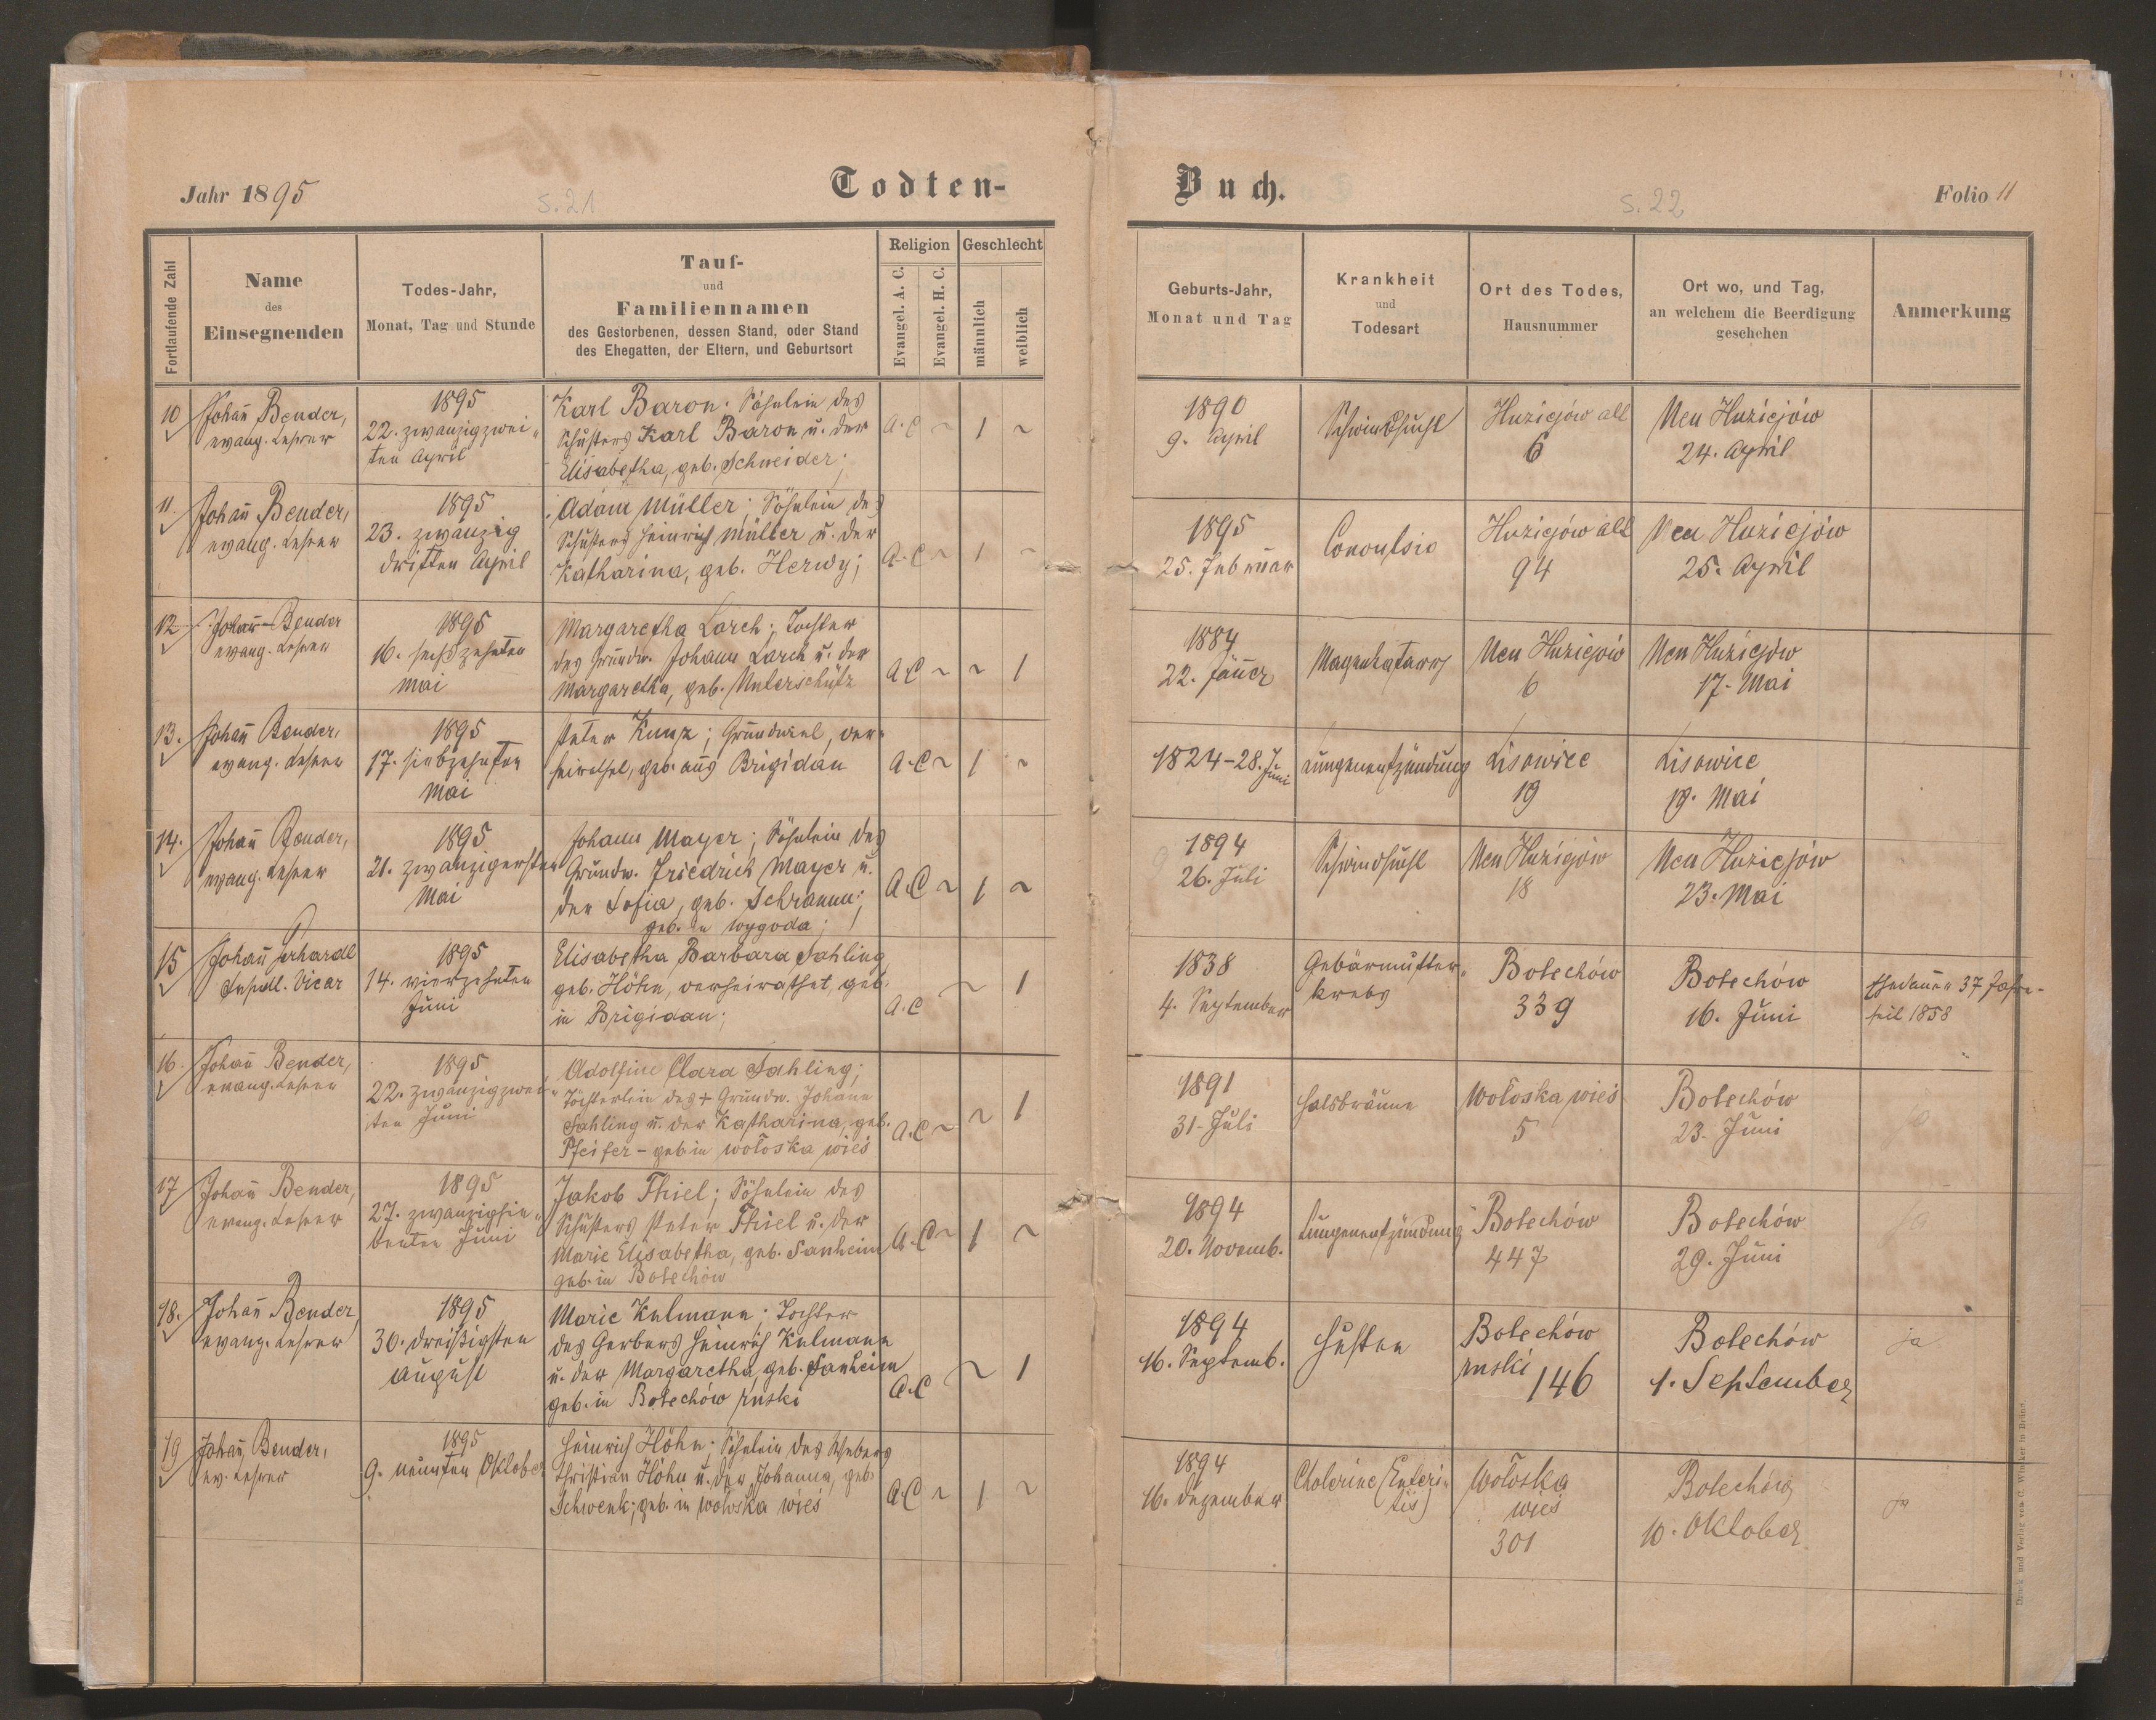 Jahr 1895
s. 21
Todten-
Buch.
s. 22
Folio 11
Fortlaufende Zahl
Name
des
Einsegnenden
Todes-Jahr,
Monat, Tag und Stunde
Tauf-
und
Familiennamen
des Gestorbenen, dessen Stand, oder Stand
des Ehegatten, der Eltern, und Geburtsort
Religion
Evangel. A. C.
Evangel. H. C.
Geschlecht
männlich
weiblich
Geburts-Jahr,
Monat und Tag
Krankheit
und
Todesart
Ort des Todes,
Hausnummer
Ort wo, und Tag,
an welchem die Beerdigung
geschehen
Anmerkung
10
Johañ Bender,
evang. Lehrer
1895
22. zwanzigzwei-
ten April
Karl Baron; Söhnlein des
Schusters Karl Baron u. der
Elisabetha, geb. Schneider;
A.C ~ 1 ~
1890
9. April
Schwindsucht
Huziejów alt
6
Neu Huziejów
24. April
11.
Johañ Bender,
evang. Lehrer
1895
23. zwanzig
dritten April
Adam Müller; Söhnlein des
Schusters Heinrich Müller u. der
Katharina, geb. Herwy;
A.C ~ 1 ~
1895
25. Februar
Convulsio
Huziejów alt
94
Neu Huziejów
25. April
12
Johañ Bender
evang. Lehrer
1895
16. sechszehnten
Mai
Margaretha Larch; Tochter
des Grundw. Johann Larch u. der
Margaretha, geb. Unterschütz
A.C ~ ~ 1
1884
22. Jäner
Magenkatarrh
Neu Huziejów
6
Neu Huziejów
17. Mai
13.
Johañ Bender,
evang. Lehrer
1895
17. siebzehnten
Mai
Peter Kunz; Grundwirt, ver-
heirathet, geb. aus Brigidau
A.C ~ 1 ~
1824-28. Juni
Lungenentzündung
Lisowice
19
Lisowice
19. Mai
14.
Johañ Bender,
evang. Lehrer
1895
21. zwanzigersten
Mai
Johann Mayer; Söhnlein des
Grundw. Friedrich Mayer u.
der Sofia, geb. Schramm;
geb. in Wygoda;
A.C ~ 1 ~
1894
26. Juli
Schwindsucht
Neu Huziejów
18
Neu Huziejów
23. Mai
15
Johañ Gerhardt
Vicar
1895
14. vierzehnten
Juni
Elisabetha Barbara Sahling
geb. Höhn, verheirathet, geb.
in Brigidau;
A.C ~ 1
1838
4. September
Gebärmutter-
krebs
Bolechów
339
Bolechów
16. Juni
Ehedauer 37 Jahre-
seit 1858
16.
Johañ Bender,
evang. Lehrer
1895
22. zwanzigzwei-
ten Juni
Adolfine Clara Sahling;
Töchterlein des + Grundw. Johann
Sahling u. der Katharina, geb.
Pfeifer - geb in wołoska wieś
A.C ~ ~ 1
1891
31. Juli
Halsbräune
Wołoska wieś
5
Bolechów
23. Juni
ja
17
Johañ Bender,
evang. Lehrer
1895
27. zwanzigsie-
benten Juni
Jakob Thiel; Söhnlein des
Schusters Peter Thiel u. der
Marie Elisabetha, geb. Sanheim
geb. in Bolechów
A.C ~ 1 ~
1894
20. Novemb.
Lungenentzündung
Bolechów
447
Bolechów
29. Juni
ja
18.
Johañ Bender,
evang. Lehrer
1895
30. dreißigsten
August
Marie Kulmann; Tochter
des Gerbers Heinrich Kulmann
u. der Margaretha, geb. Sanheim
geb. in Bolechów ruski
A.C ~ 1
1894
16. Septemb.
Husten
Bolechów
ruski 146
Bolechów
1. September
ja
19
Johañ Bender,
ev. Lehrer
1895
9. neunten Oktober
Heinrich Höhn; Söhnlein des Webers
Christian Höhn u. der Johanna, geb.
Schwenk; geb. in wołoska wieś
A.C ~ 1 ~
1894
16. Dezember
Cholerine (Enteri-
tis)
Wołoska
wieś
301
Bolechów
10. Oktober
ja
Druck und Verlag von C. Winiker in Brünn.